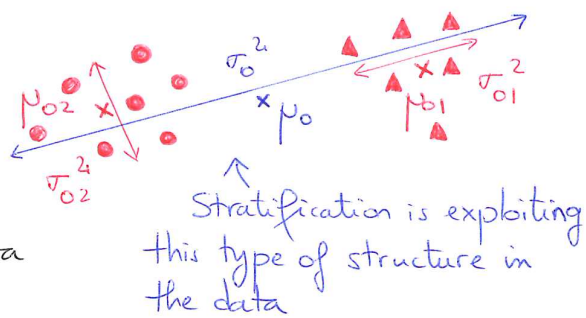 σ₀²
μ₀₂
σ₀₂²
μ₀
μ₀₁
σ₀₁²
Stratification is exploiting
this type of structure in
the data
a